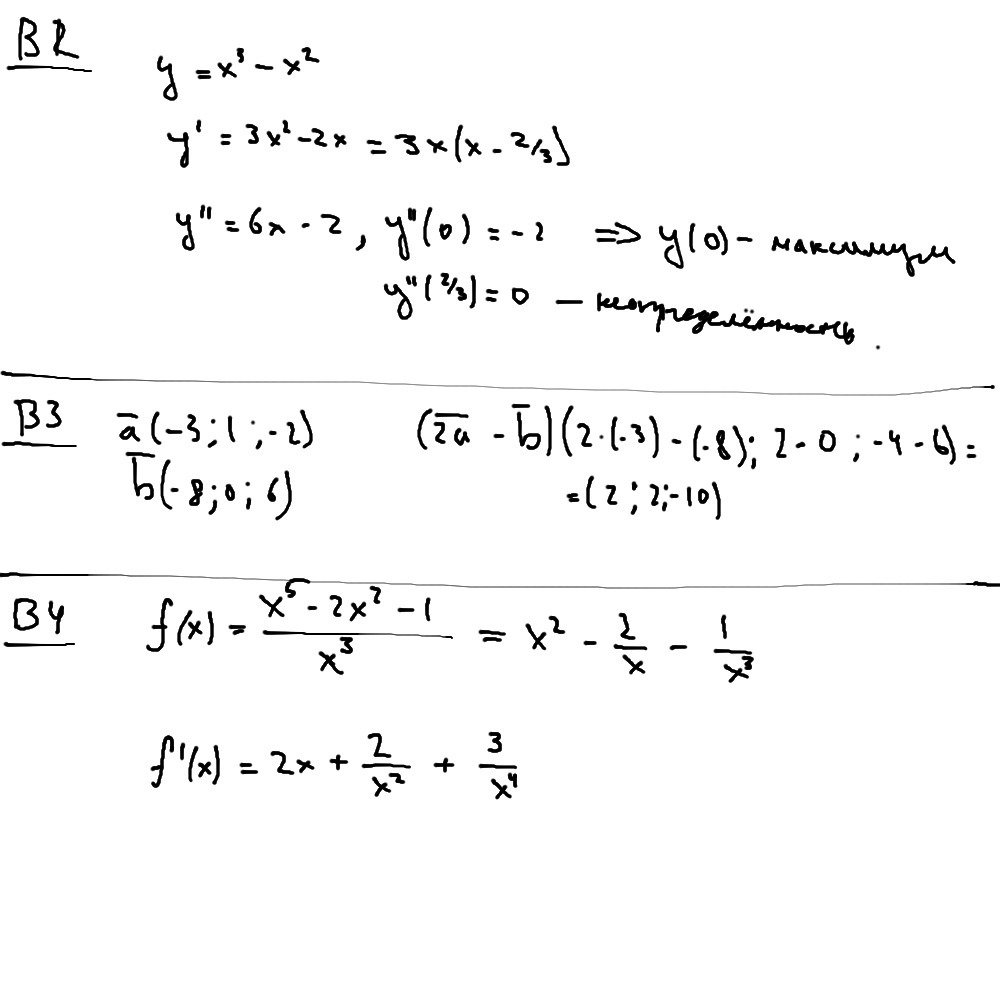 В2
y = x³ - x²
y' = 3x² - 2x = 3x(x - 2/3)
y'' = 6x - 2, y''(0) = -2 => y(0) - максимум
y''(2/3) = 0 — неопределённость.
В3
a̅(-3; 1; -2) (2̅a̅ - b̅)(2·(-3) - (-8); 2 - 0; -4 - 6) =
b̅(-8; 0; 6) = (2; 2; -10)
В4
f(x) = (x⁵ - 2x² - 1)/x³ = x² - 2/x - 1/x³
f'(x) = 2x + 2/x² + 3/x⁴